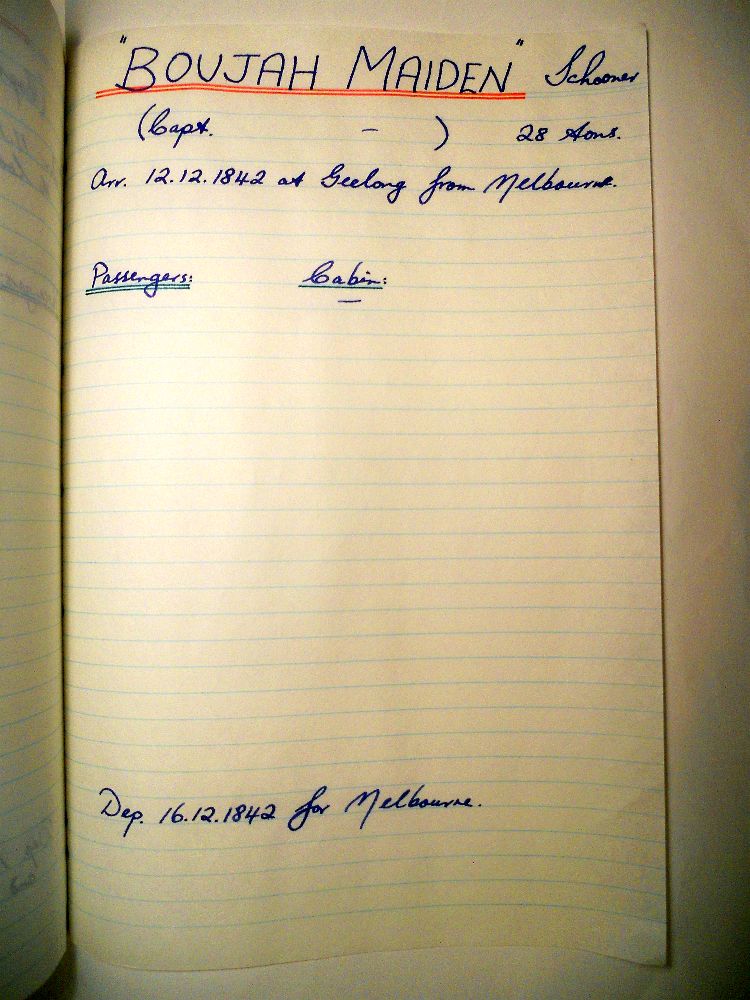 "BOUJAH MAIDEN" Schooner
(Capt. - ) 28 tons.
Arr. 12.12.1842 at Geelong from Melbourne.
Passengers: Cabin:
—
Dep. 16.12.1842 for Melbourne.